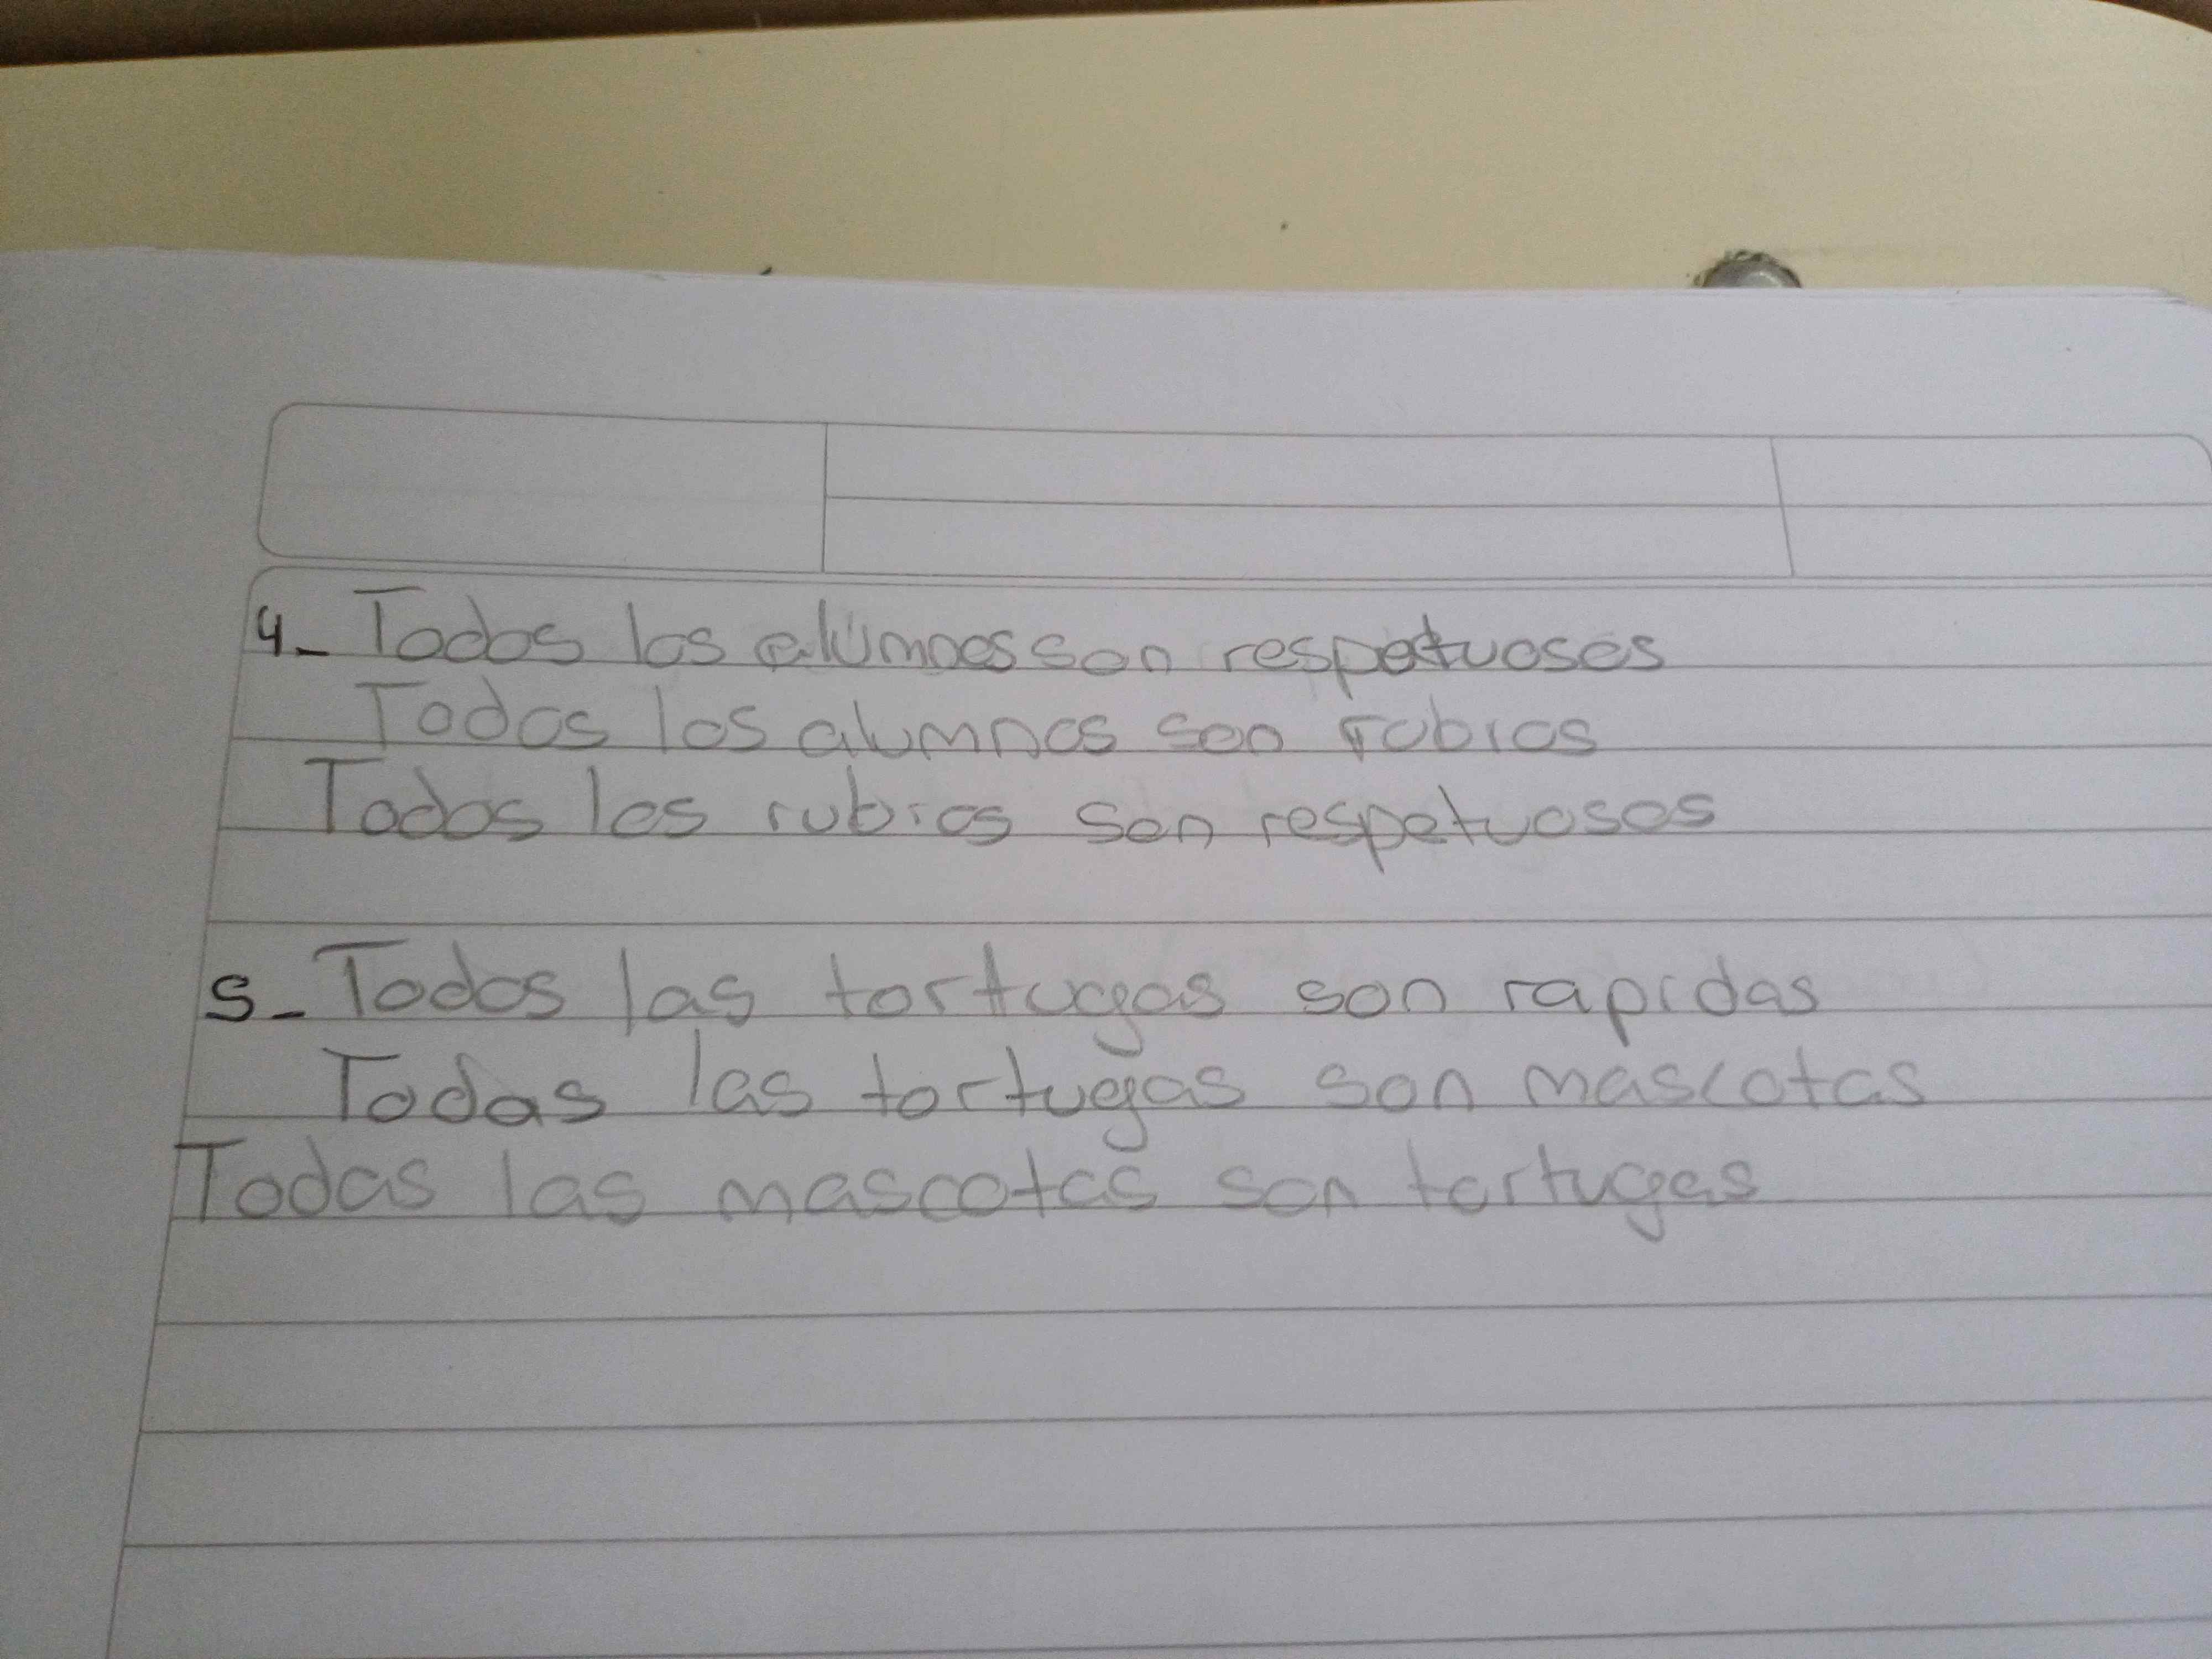 4- Todos los alumnos son respetuosos
Todos los alumnos son rubios
Todos los rubios son respetuosos
5- Todos las tortugas son rapidas
Todas las tortugas son mascotas
Todas las mascotas son tortugas